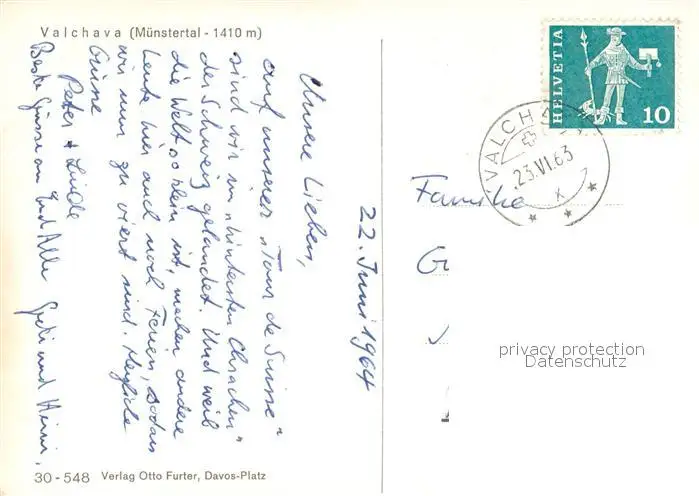 Valchava (Münstertal - 1410 m)
22. Juni 1964
Unsere Lieben,
auf unserer "Tour de Suisse"
sind wir im "hintersten Chrachen"
der Schweiz gelandet. Und weil
die Welt so klein ist, machen andere
Leute hier auch noch Ferien, sodass
wir nun zu viert sind. Herzliche
Grüsse
Peter + Linde
Beste Grüsse an Alle und Heini.
30-548 Verlag Otto Furter, Davos-Platz
HELVETIA
10
VALCHAVA
23.VI.63
Familie
G
privacy protection
Datenschutz